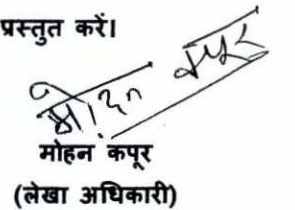 प्रस्तुत करें।
मोहन कपूर
मोहन कपूर
(लेखा अधिकारी)